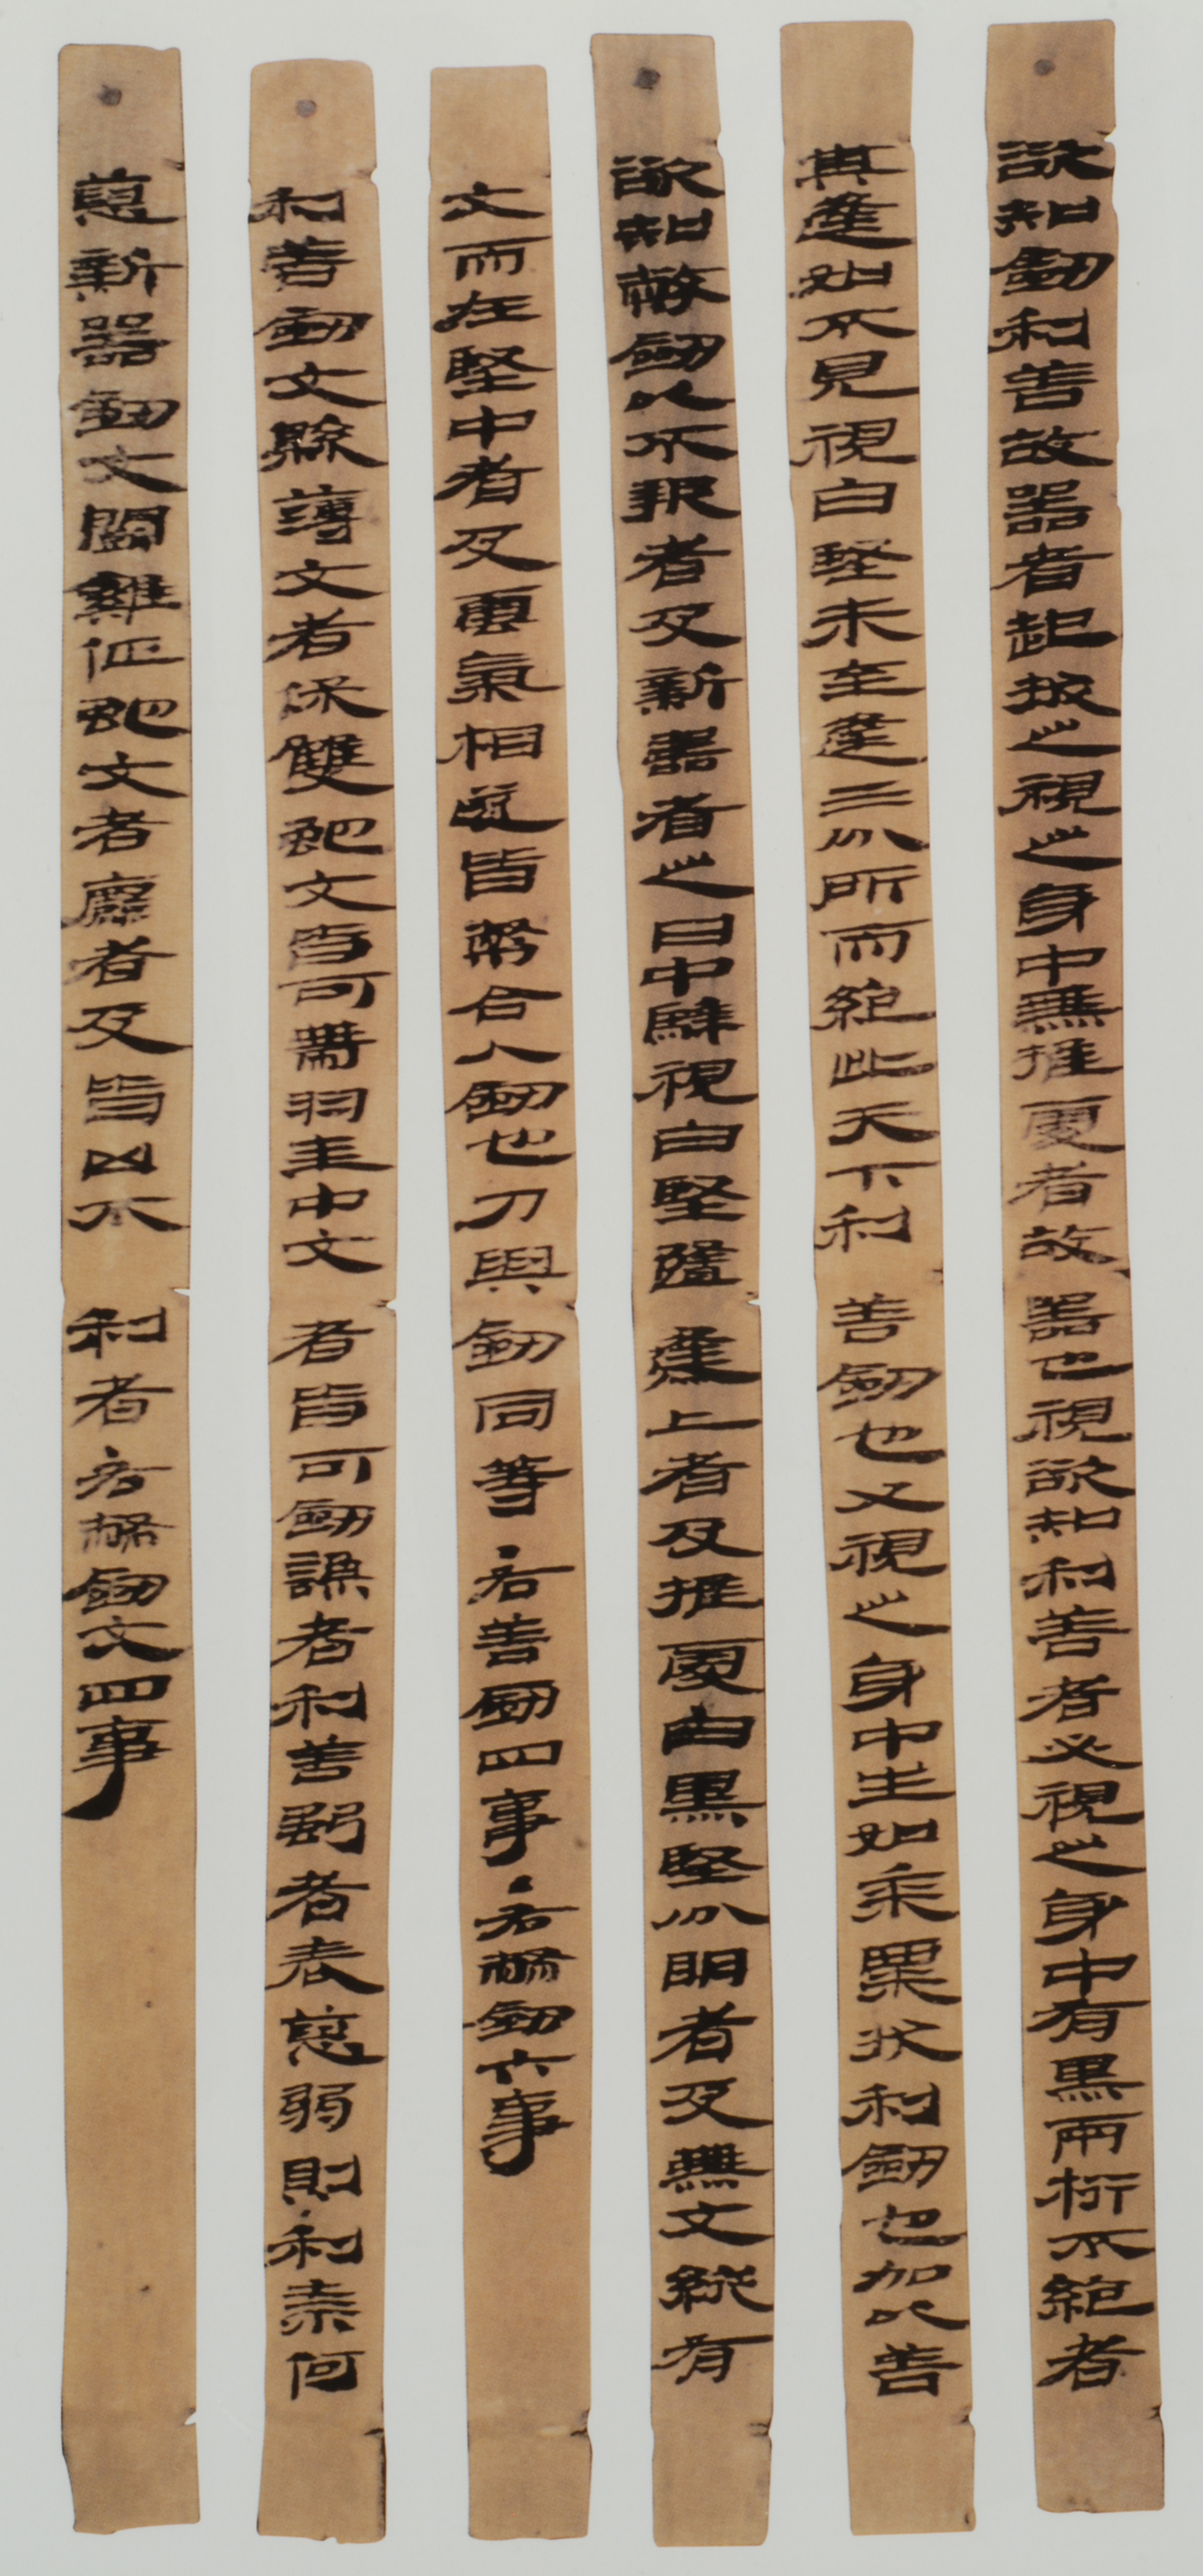 欲知劍利善故器者起拔之視之身中無推處者故器也視欲知利善者必視之身中有黑兩桁不絕者
其逢如不見視白堅未至逢三分所而絕此天下利善劍也又視之身中生如黍粟狀利劍也加以善
欲知幣劍以不報者及新器者之日中騂視白堅隨逢上者及推處白黑堅分明者及無文縱有
文而在堅中者及雲氣相遂皆幣合人劍也刀與劍同等・右善劍四事・右幣劍六事
利善劍文縣薄文者保雙蛇文皆可帶羽圭中文者皆可劍謙者利善強者表惡弱則利奈何
惡新器劍文鬬雞佂蛇文者麤者及皆凶不利者・右幣劍文四事